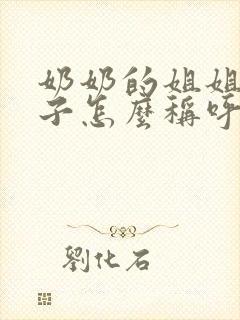 奶奶的姐姐
子怎麼稱呼
劉化石